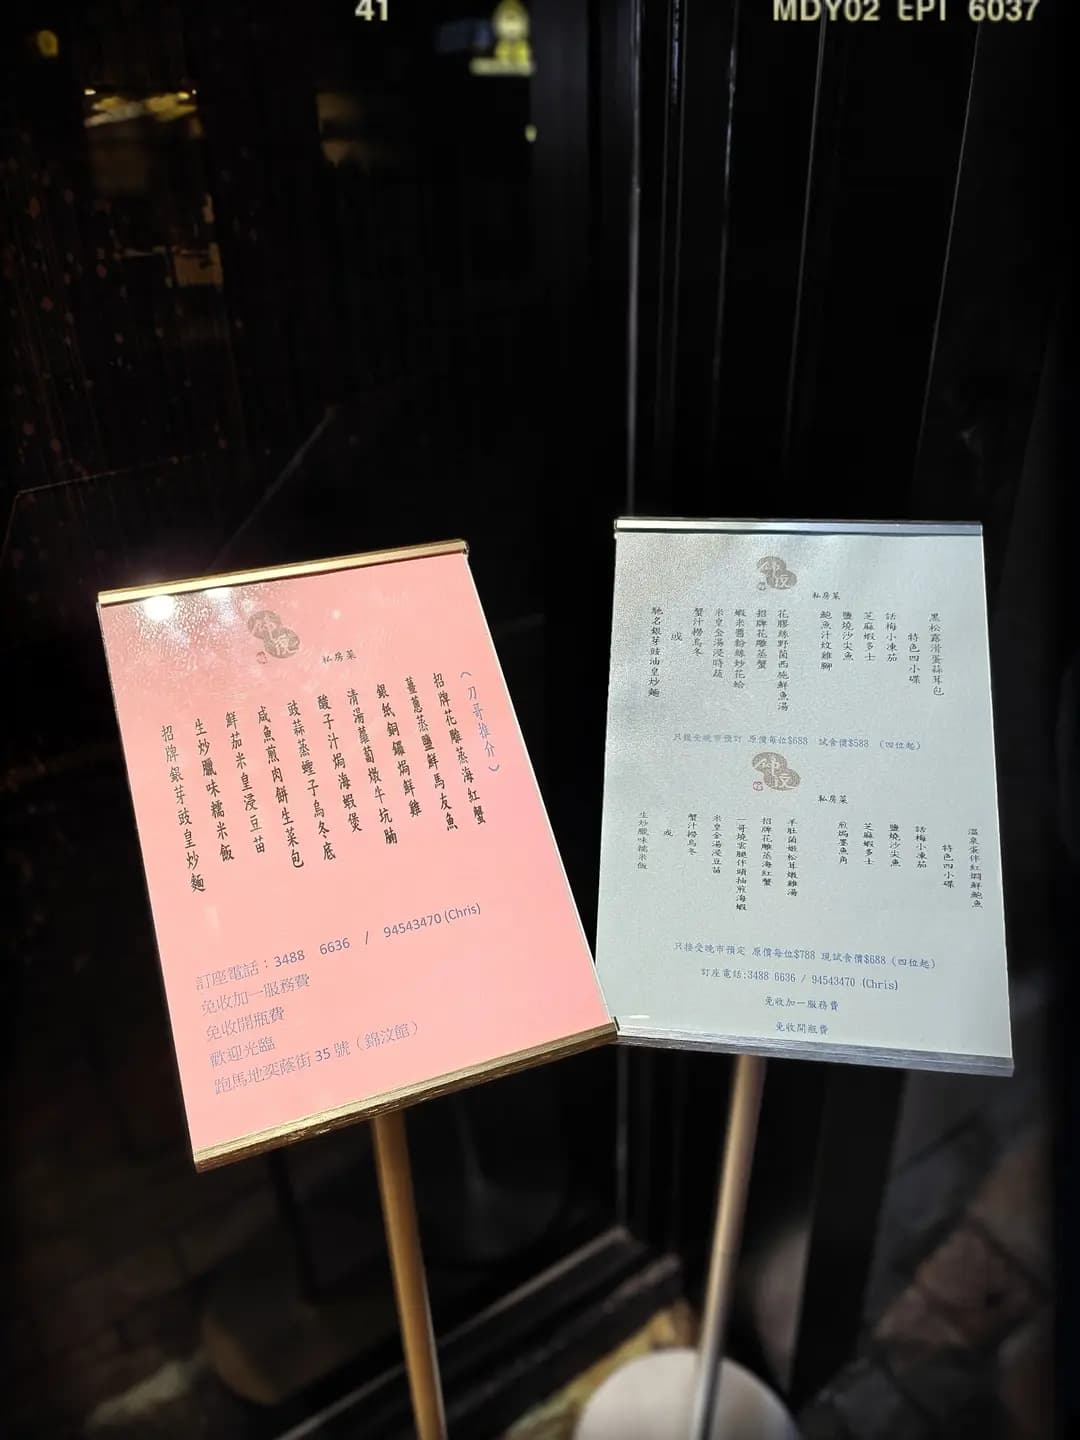 41
MDY02 EPT 6037
私房菜
（刀哥推介）
招牌花雕蒸海紅蟹
薑蔥蒸鹽鮮馬友魚
銀紙銅鑼焗鮮雞
清湯蘿蔔燉牛坑腩
酸子汁焗海蝦煲
豉蒜蒸蟶子烏冬底
咸魚煎肉餅生菜包
鮮茄米皇浸豆苗
生炒臘味糯米飯
招牌銀芽豉皇炒麵
訂座電話：3488 6636 / 94543470 (Chris)
免收加一服務費
免收開瓶費
歡迎光臨
跑馬地奕蔭街 35 號（錦汶館）
私房菜
黑松露滑蛋蒜茸包
特色四小碟
話梅小凍茄
芝麻蝦多士
鹽燒沙尖魚
鮑魚汁炆雞腳
花膠絲野菌西施鮮魚湯
招牌花雕蒸蟹
蝦米醬粉絲炒花蛤
米皇金湯浸時蔬
蟹汁撈烏冬
或
馳名銀芽豉油皇炒麵
只接受晚市預訂 原價每位$688 試食價$588 （四位起）
私房菜
溫泉蛋伴紅燜鮮鮑魚
特色四小碟
話梅小凍茄
鹽燒沙尖魚
芝麻蝦多士
煎焗墨魚角
羊肚菌嫩松茸燉雞湯
招牌花雕蒸海紅蟹
一哥燒雲腿伴頭抽煎海蝦
米皇金湯浸豆苗
蟹汁撈烏冬
或
生炒臘味糯米飯
只接受晚市預定 原價每位$788 現試食價$688 (四位起)
訂座電話:3488 6636 / 94543470 (Chris)
免收加一服務費
免收開瓶費